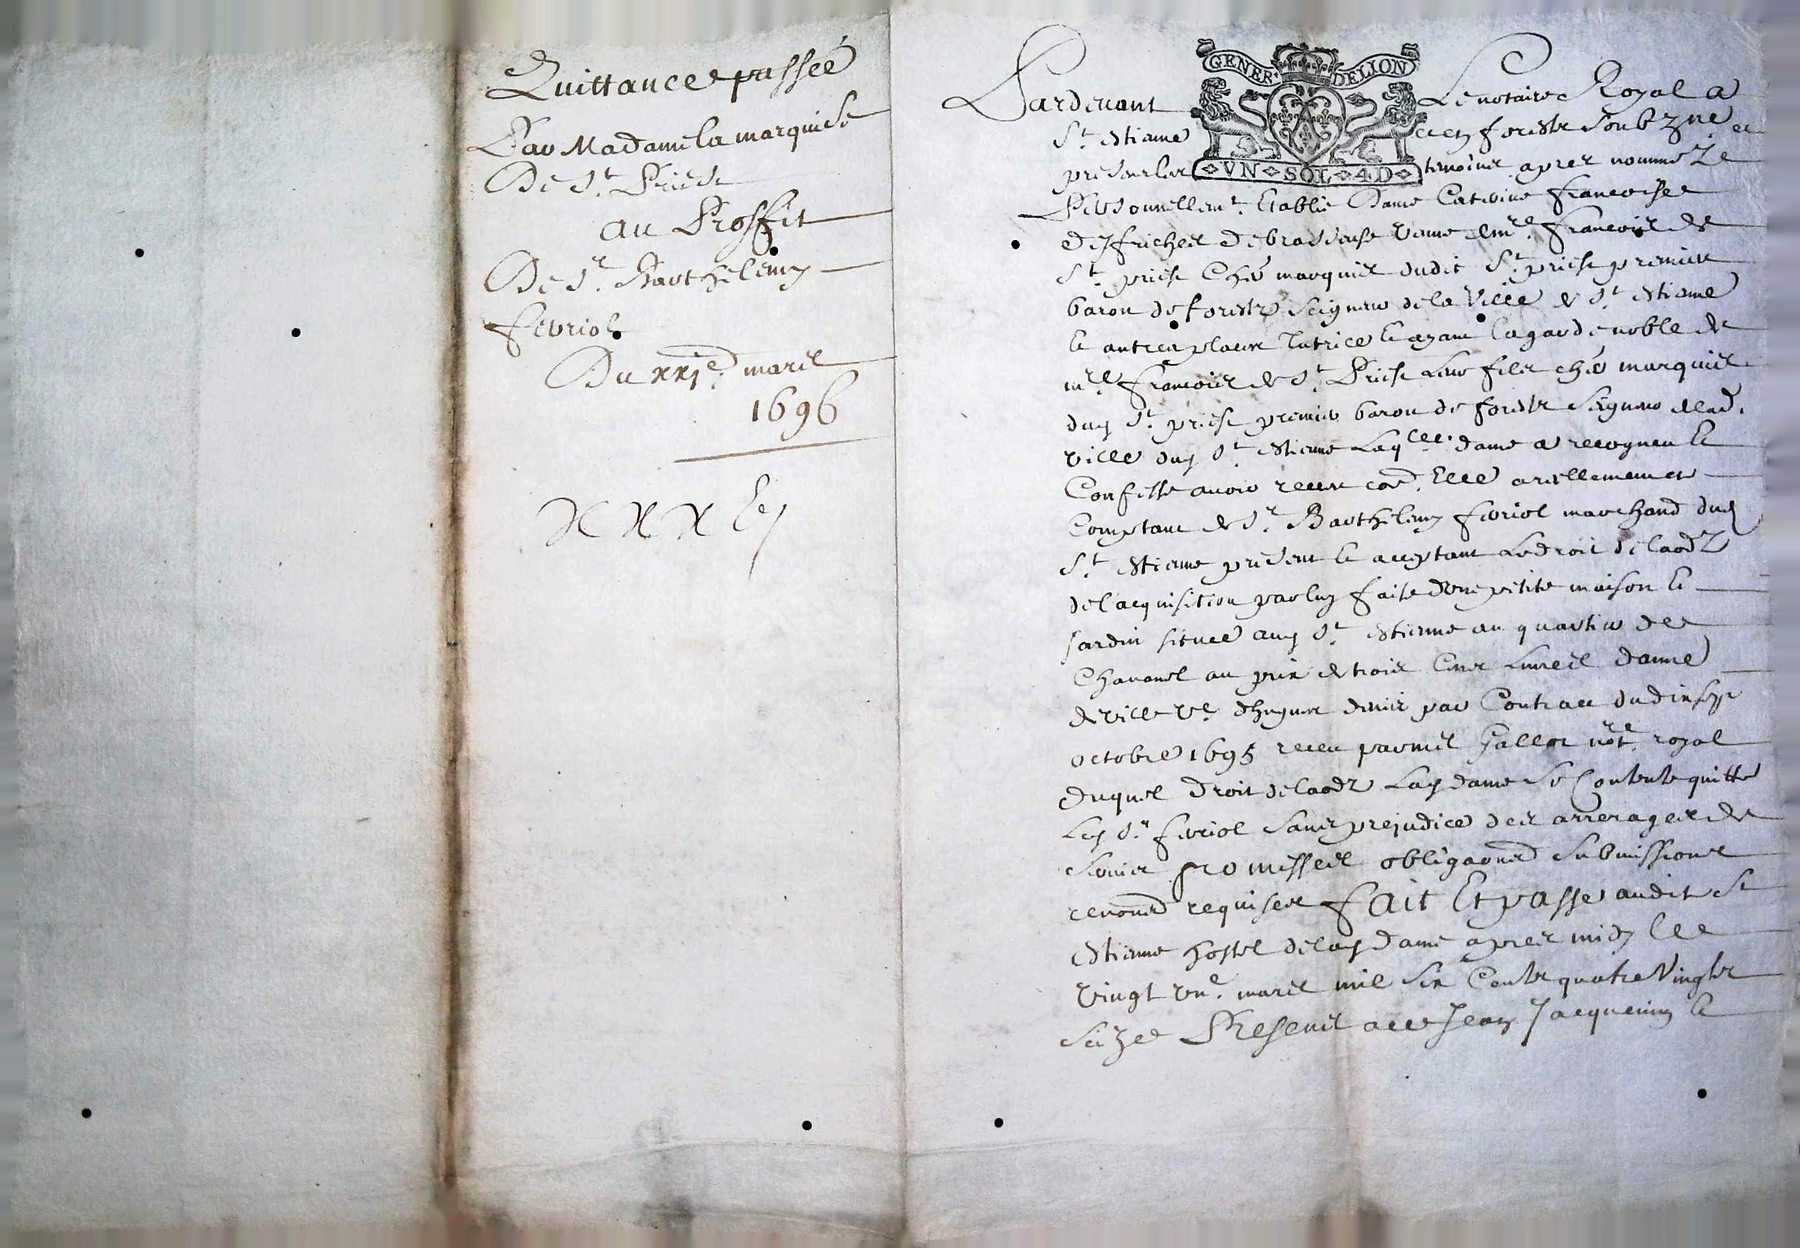 Quittance passée
Par Madame la marquise
De St. Priest
au Proffit
De Sr. Barthelemy
fevriol
Du xxje. mars
1696
GENER. DELION
VN SOL 4 D
Pardevant Le notaire Royal a
St. estienne en forestz soubzne. et
presents les temoins apres nommez
Personnellemt. Establie Dame Caterine francoise
de francois de
St. priest cher. marquis dudit St. priest premier
baron de forestz Seigneur de la Ville de St. estienne
et autres places Tutrice et ayant la garde noble de
mre. francois de St. Priest son fils cher. marquis
dud. St. priest premier baron de forestz Seigneur de lad.
ville dud. St. estienne Laqlle. dame a recogneu et
Confesse avoir receu elle reellement et
Comptant de Sr. Barthelemy fevriol marchand dud.
St. estienne present et acceptant Le droit de laodz
de l'acquisition par luy faite d'une petite maison et
jardin situee aud. St. estienne au quartier de
Chavanel au prix de trois Cens Livres
par Contract du dix sept
octobre 1695 receu par mes. Gallot notre. royal
duquel droit de laodz Lad. dame se Contente quitte
Led. Sr. fevriol sans prejudice des arrerages de
promesses obligaons submissions
renons requises fait Et passe audit St
estienne hostel de lad. dame apres midy le
vingt vne. mars mil six Cents quatre vingts
seize Presents Jean Jacquemin et